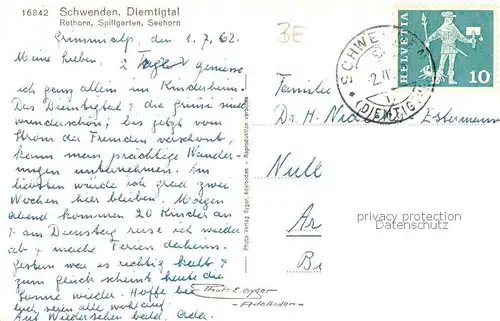 16842 Schwenden, Diemtigtal
Rothorn, Spillgerten, Seehorn
Grimmialp, 1.7.62
Meine Lieben. 2 Tage geniesse
ich ganz allein im Kinderheim.
Das Diemtigtal & die grimmi sind
wunderschön; bis jetzt vom
Strom der Fremden verschont,
kann man prächtige Wander-
ungen unternehmen. Am
liebsten würde ich grad zwei
Wochen hier bleiben. Morgen
abend kommen 20 Kinder an
& am Dienstag reise ich wieder
ab & mache Ferien daheim.
Gestern war es richtig kalt &
zum Glück scheint heute die
Sonne wieder. Hoffe bei
Euch seien alle wohlauf.
Auf Wiedersehen bald,
Photo Verlag Gyger, Adelboden - Reproduction verboten
BE
SCHWENDEN
(DIEMTIGTAL)
HELVETIA
10
Familie
Dr. H. Estermann
Null
Ar
Bi
privacy protection
Datenschutz
Phot. E. Gyger
Adelboden